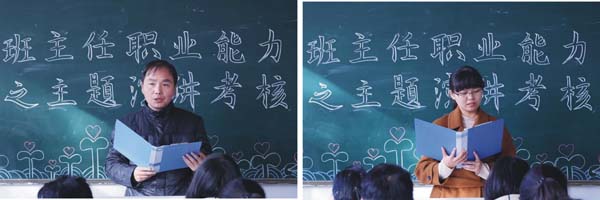 班主任职业能力
之主题演讲考核
班主任职业能力
之主题演讲考核